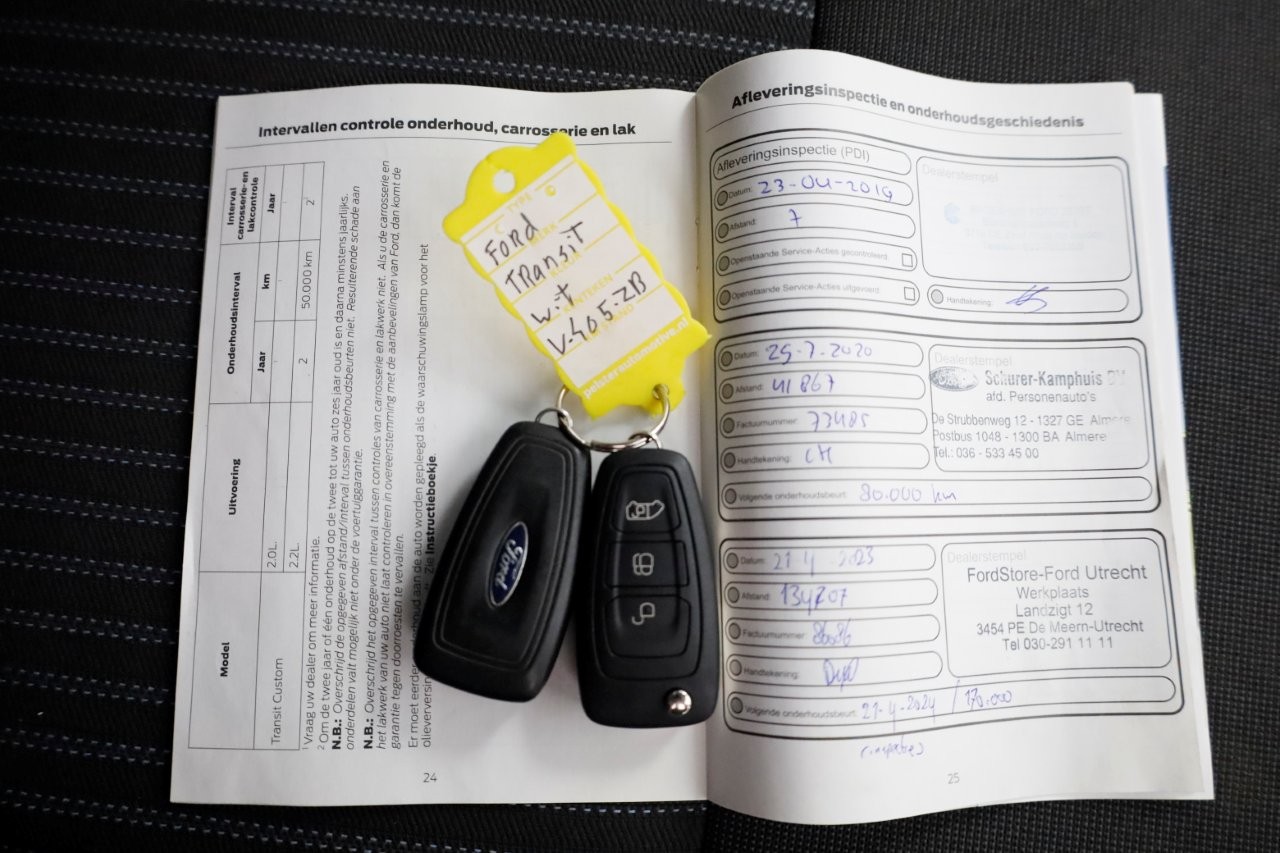 Intervallen controle onderhoud, carrosserie en lak
Model
Uitvoering
Onderhoudsinterval
Interval carrosserie- en lakcontrole
Jaar
km
Jaar
Transit Custom
2.0L.
2.2L.
2
50.000 km
2
¹ Vraag uw dealer om meer informatie.
² Om de twee jaar of één onderhoud op de twee tot uw auto zes jaar oud is en daarna minstens jaarlijks.
N.B.: Overschrijd de opgegeven afstand/interval tussen onderhoudsbeurten niet. Resulterende schade aan
onderdelen valt mogelijk niet onder de voertuiggarantie.
N.B.: Overschrijd het opgegeven interval tussen controles van carrosserie en lakwerk niet. Als u de carrosserie en
het lakwerk van uw auto niet laat controleren in overeenstemming met de aanbevelingen van Ford, dan komt de
garantie tegen doorroesten te vervallen.
Er moet eerder aan de auto worden gepleegd als de waarschuwingslamp voor het
Zie Instructieboekje.
24
TYPE
Ford
Transit
Wit
V-405-ZB
polsterautomotive.nl
Ford
Afleveringsinspectie en onderhoudsgeschiedenis
Afleveringsinspectie (PDI)
Datum: 23-04-2019
Afstand: 7
Openstaande Service-Acties gecontroleerd:
Openstaande Service-Acties uitgevoerd:
Dealerstempel
Handtekening:
Datum: 29-7-2020
Afstand: 41867
Factuurnummer: 73485
Handtekening:
Volgende onderhoudsbeurt: 80.000 km
Dealerstempel
Scherer-Kamphuis BV
afd. Personenauto's
De Strubbenweg 12 - 1327 GE Almere
Postbus 1048 - 1300 BA Almere
Tel.: 036 - 533 45 00
Datum: 21 4 2023
Afstand: 134707
Factuurnummer:
Handtekening:
Volgende onderhoudsbeurt: 21-4-2024 / 170.000
Dealerstempel
FordStore-Ford Utrecht
Werkplaats
Landzigt 12
3454 PE De Meern-Utrecht
Tel 030-291 11 11
25